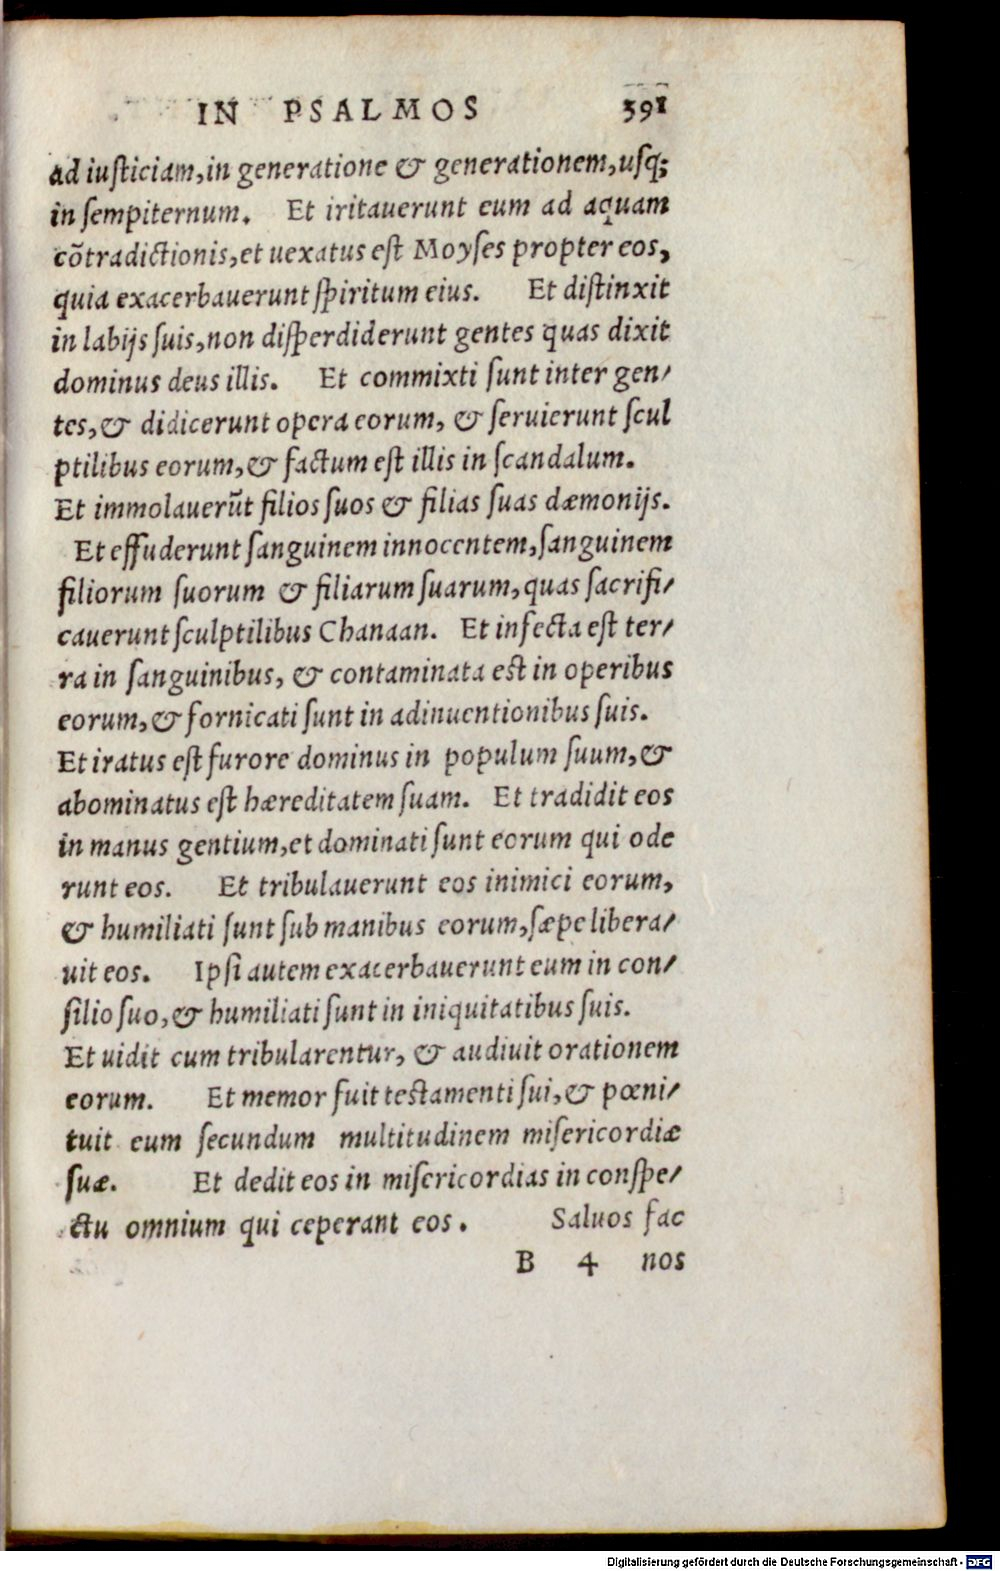 IN PSALMOS 391
ad iusticiam, in generatione & generationem, usq;
in sempiternum. Et iritauerunt eum ad aquam
cõtradictionis, et uexatus est Moyses propter eos,
quia exacerbauerunt spiritum eius. Et distinxit
in labijs suis, non disperdiderunt gentes quas dixit
dominus deus illis. Et commixti sunt inter gen/
tes, & didicerunt opera eorum, & seruierunt scul
ptilibus eorum, & factum est illis in scandalum.
Et immolauerũt filios suos & filias suas dæmonijs.
Et effuderunt sanguinem innocentem, sanguinem
filiorum suorum & filiarum suarum, quas sacrifi/
cauerunt sculptilibus Chanaan. Et infecta est ter/
ra in sanguinibus, & contaminata est in operibus
eorum, & fornicati sunt in adinuentionibus suis.
Et iratus est furore dominus in populum suum, &
abominatus est hæreditatem suam. Et tradidit eos
in manus gentium, et dominati sunt eorum qui ode
runt eos. Et tribulauerunt eos inimici eorum,
& humiliati sunt sub manibus eorum, sæpe libera/
uit eos. Ipsi autem exacerbauerunt eum in con/
silio suo, & humiliati sunt in iniquitatibus suis.
Et uidit cum tribularentur, & audiuit orationem
eorum. Et memor fuit testamenti sui, & pœni/
tuit eum secundum multitudinem misericordiæ
suæ. Et dedit eos in misericordias in conspe/
ctu omnium qui ceperant eos. Saluos fac
B 4 nos
Digitalisierung gefördert durch die Deutsche Forschungsgemeinschaft - DFG